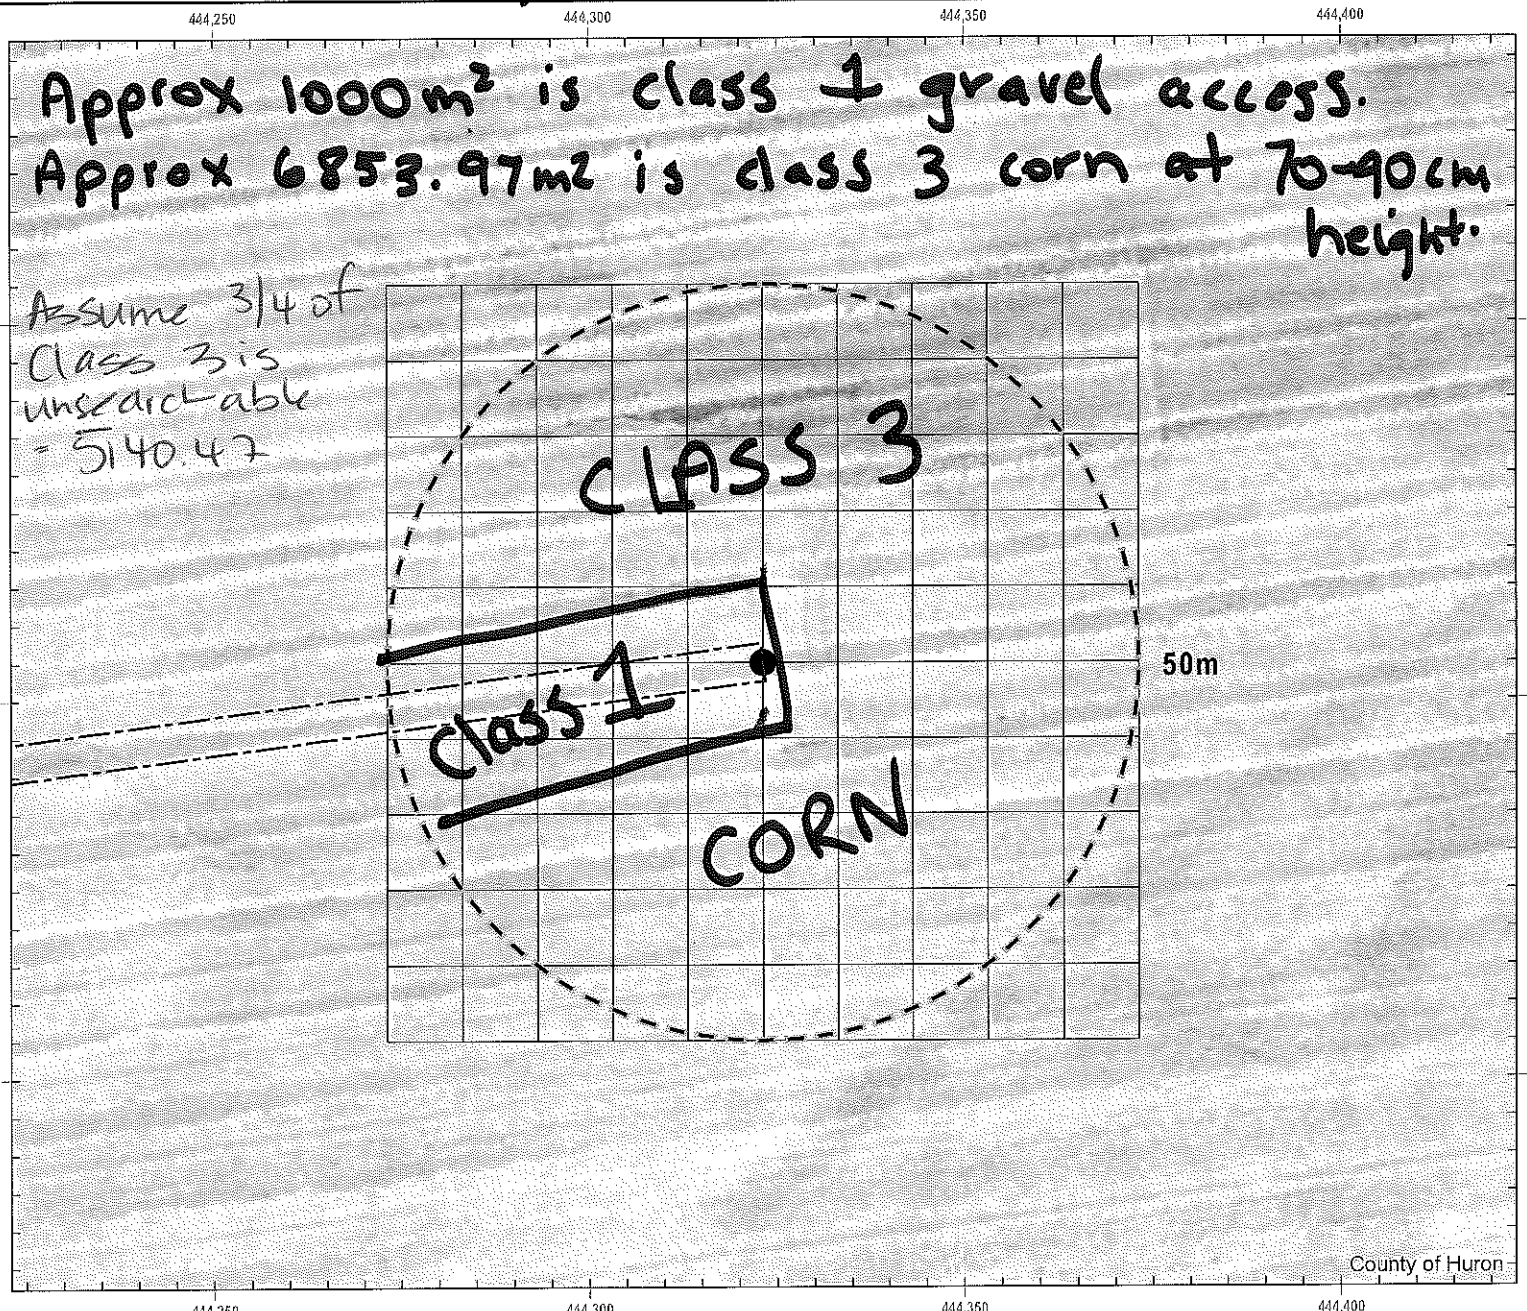 444,250 444,300 444,350 444,400
Approx 1000m² is class 1 gravel access.
Approx 6853.97m2 is class 3 corn at 70-90cm
height.
Assume 3/4 of
Class 3 is
unsearchable
= 5140.47
CLASS 3
50m
Class 1
CORN
County of Huron
444,250 444,300 444,350 444,400